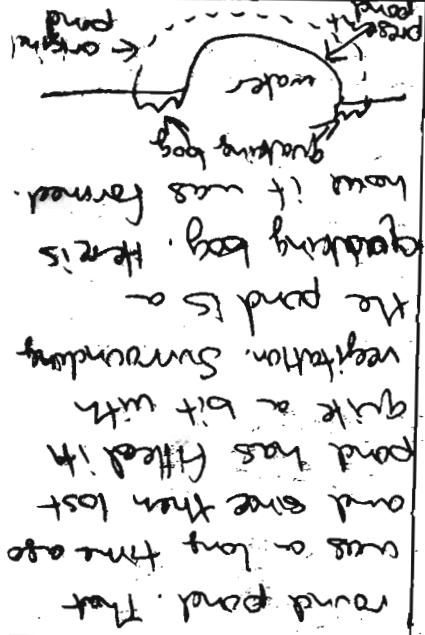 round pond. That
was a long time ago
and since then lost
pond has filled in
quite a bit with
vegitation. Surrounding
the pond is a
quaking bog. Here is
how it was formed.
quaking bog
water
present
pond
original
pond